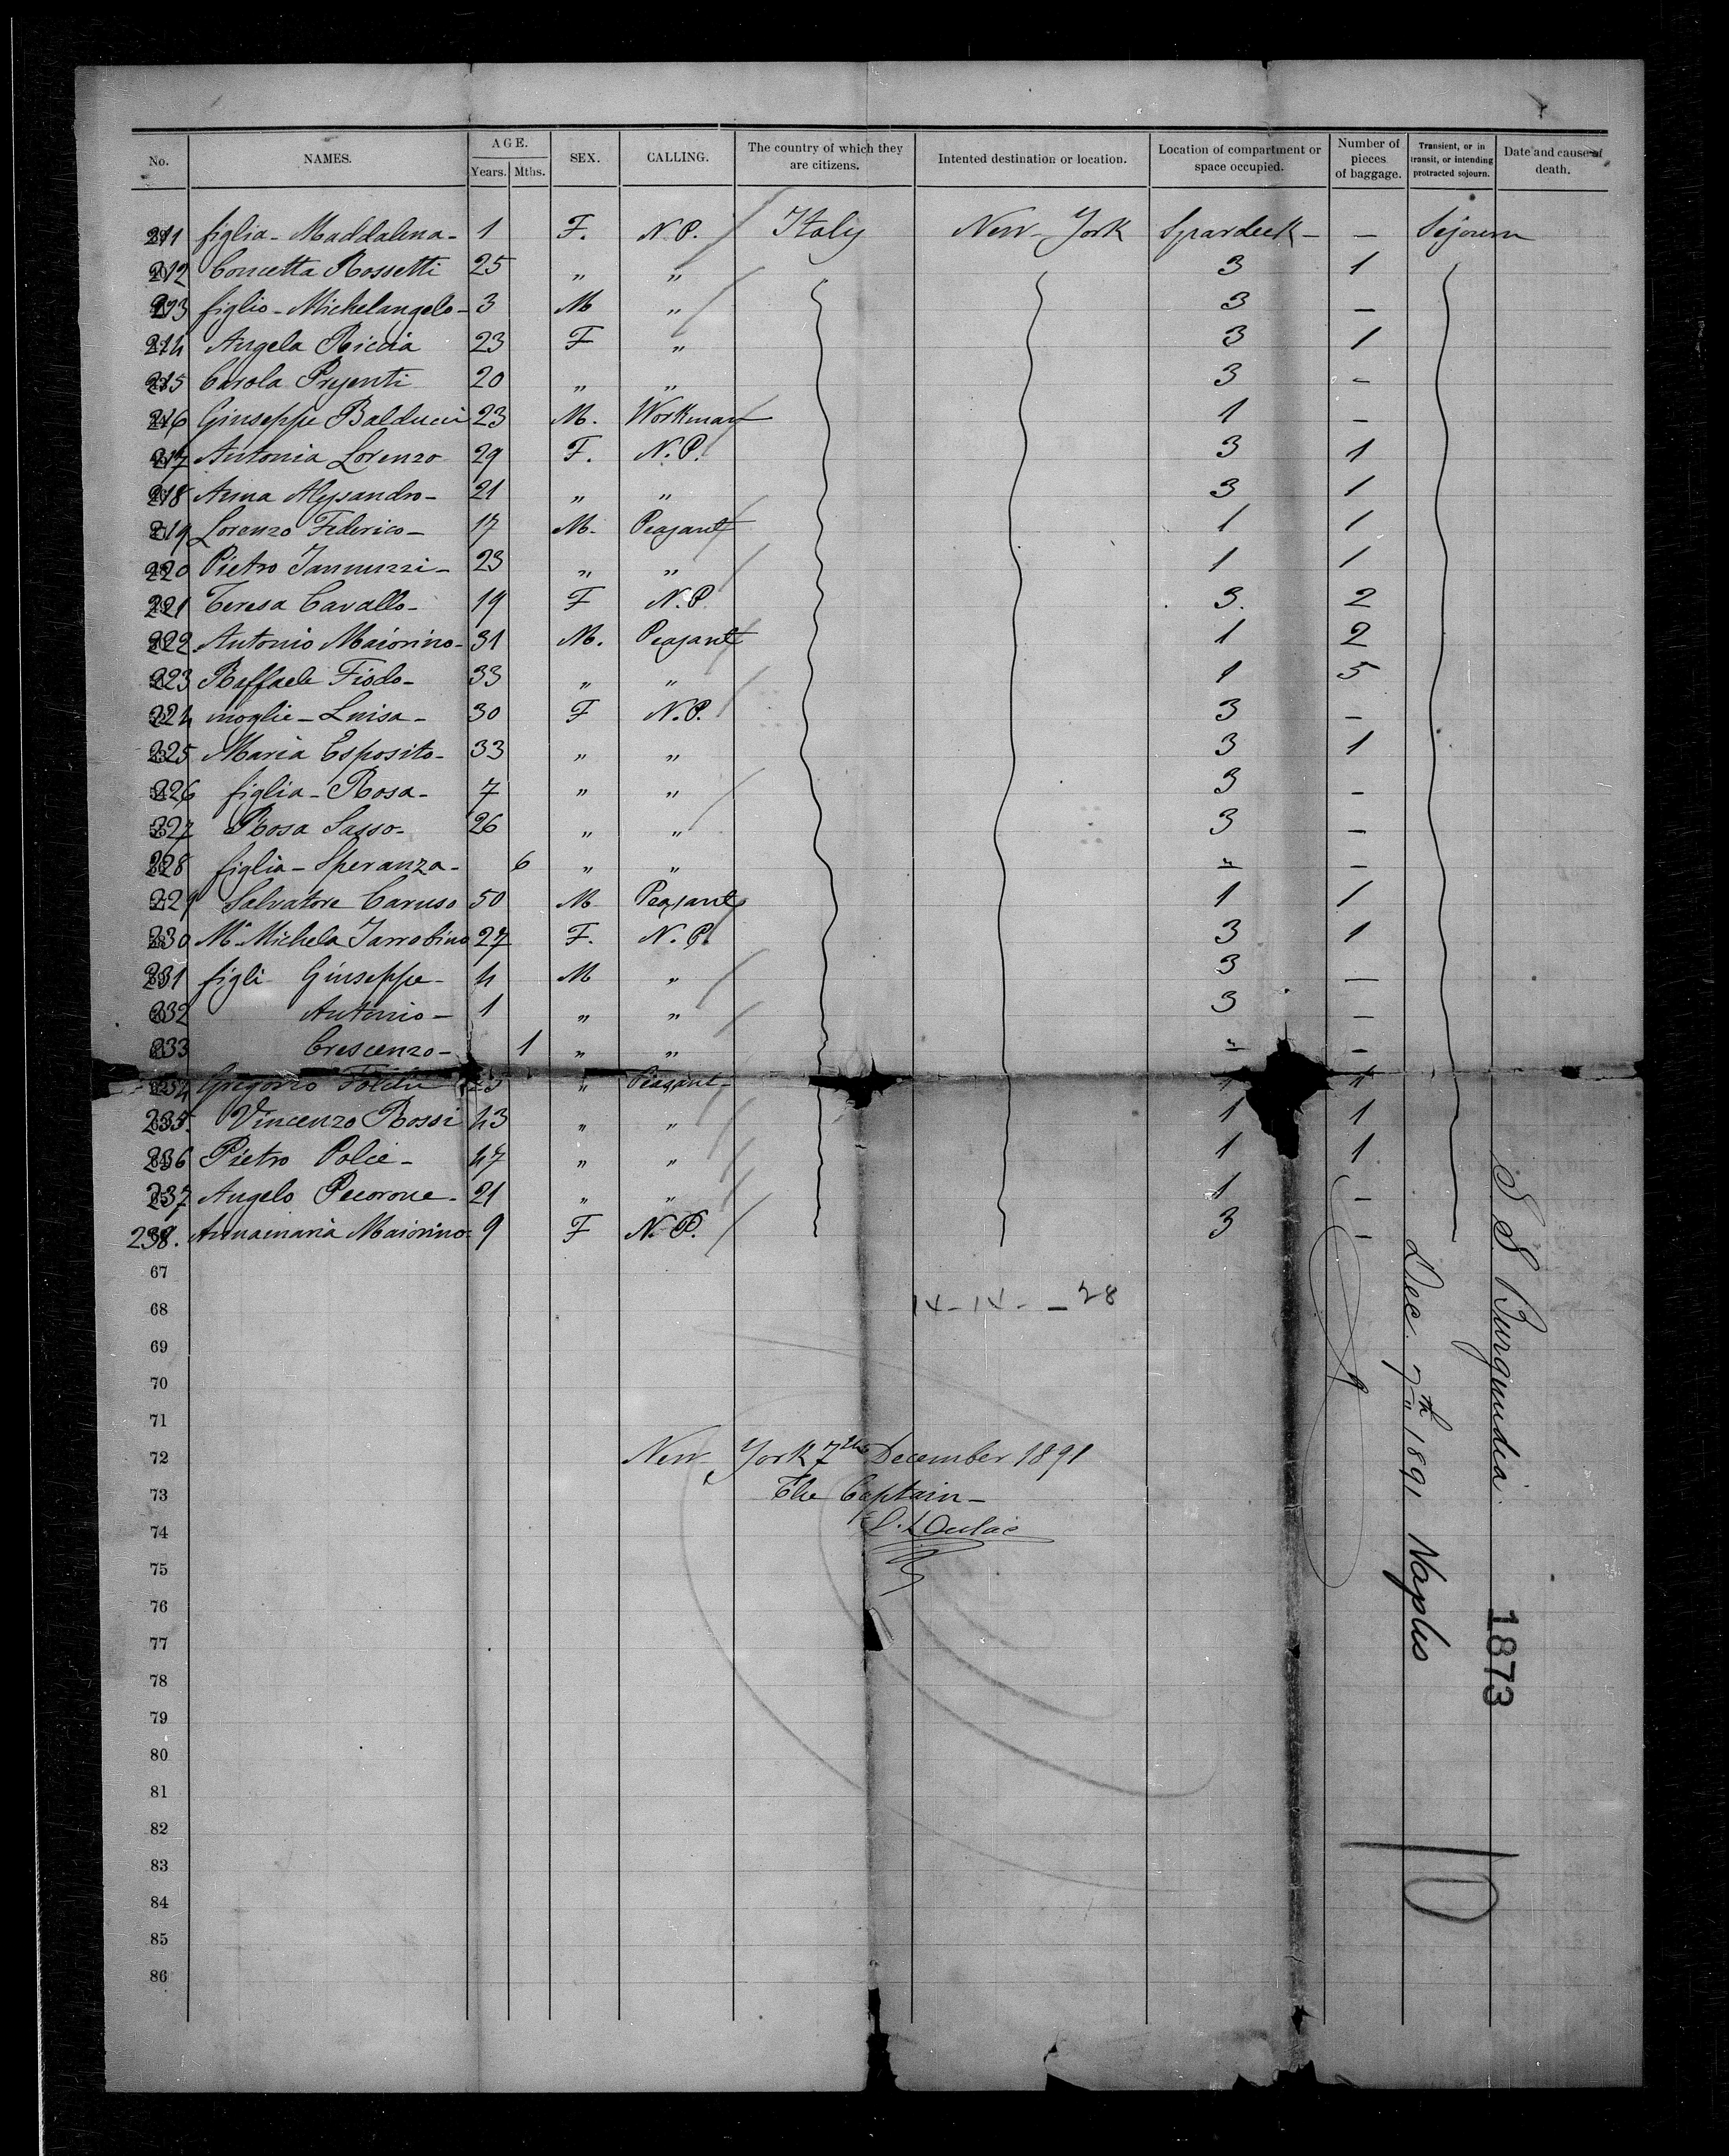 No. NAMES. AGE. Years. Mths. SEX. CALLING. The country of which they are citizens. Intented destination or location. Location of compartment or space occupied. Number of pieces of baggage. Transient, or in transit, or intending protracted sojourn. Date and cause of death.
211 figlia - Maddalena - 1 F. N.P. Italy New-York Spardeck - — Sejourn
212 Concetta Rossetti 25 " " 3 1
213 figlio - Michelangelo - 3 M " 3 —
214 Angela Riccia 23 F " 3 1
215 Carola 20 " " 3 —
216 Giuseppe Balducci 23 M. Workman 1 —
217 Antonia Lorenzo 29 F. N.P. 3 1
218 Anna Alessandro - 21 " " 3 1
219 Lorenzo Federico - 17 M. Peasant 1 1
220 Pietro Iannuzzi - 23 " " 1 1
221 Teresa Cavallo - 19 F N.P. 3. 2
222 Antonio Maiorino - 31 M. Peasant 1 2
223 Raffaele Fiodo - 33 " " 1 5
224 moglie - Luisa - 30 F N.P. 3 —
225 Maria Esposito - 33 " " 3 1
226 figlia - Rosa - 7 " " 3 —
227 Rosa Sasso - 26 " " 3 —
228 figlia - Speranza - 6 " " " —
229 Salvatore Caruso 50 M Peasant 1 1
230 Ma Michela Iarrobino 27 F. N.P. 3 1
231 figli Giuseppe - 4 M " 3 —
232 Antonio - 1 " " 3 —
233 Crescenzo - 1 " " " —
234 Gregorio " Peasant - 1 1
235. Vincenzo Rossi 43 " " 1 1
236 Pietro Polce - 47 " " 1 1
237 Angelo Pecorone - 21 " " 1 —
238. Annamaria Maiorino - 9 F N.P. 3 —
67
68 14 - 14 - - 28
69
70
71
72 New York 7th December 1891
73 The Captain -
74
75
76
77
78
79
80
81
82
83
84
85
86
S. S. Burgundia.
Dec. 7th 1891 Naples
1873
10